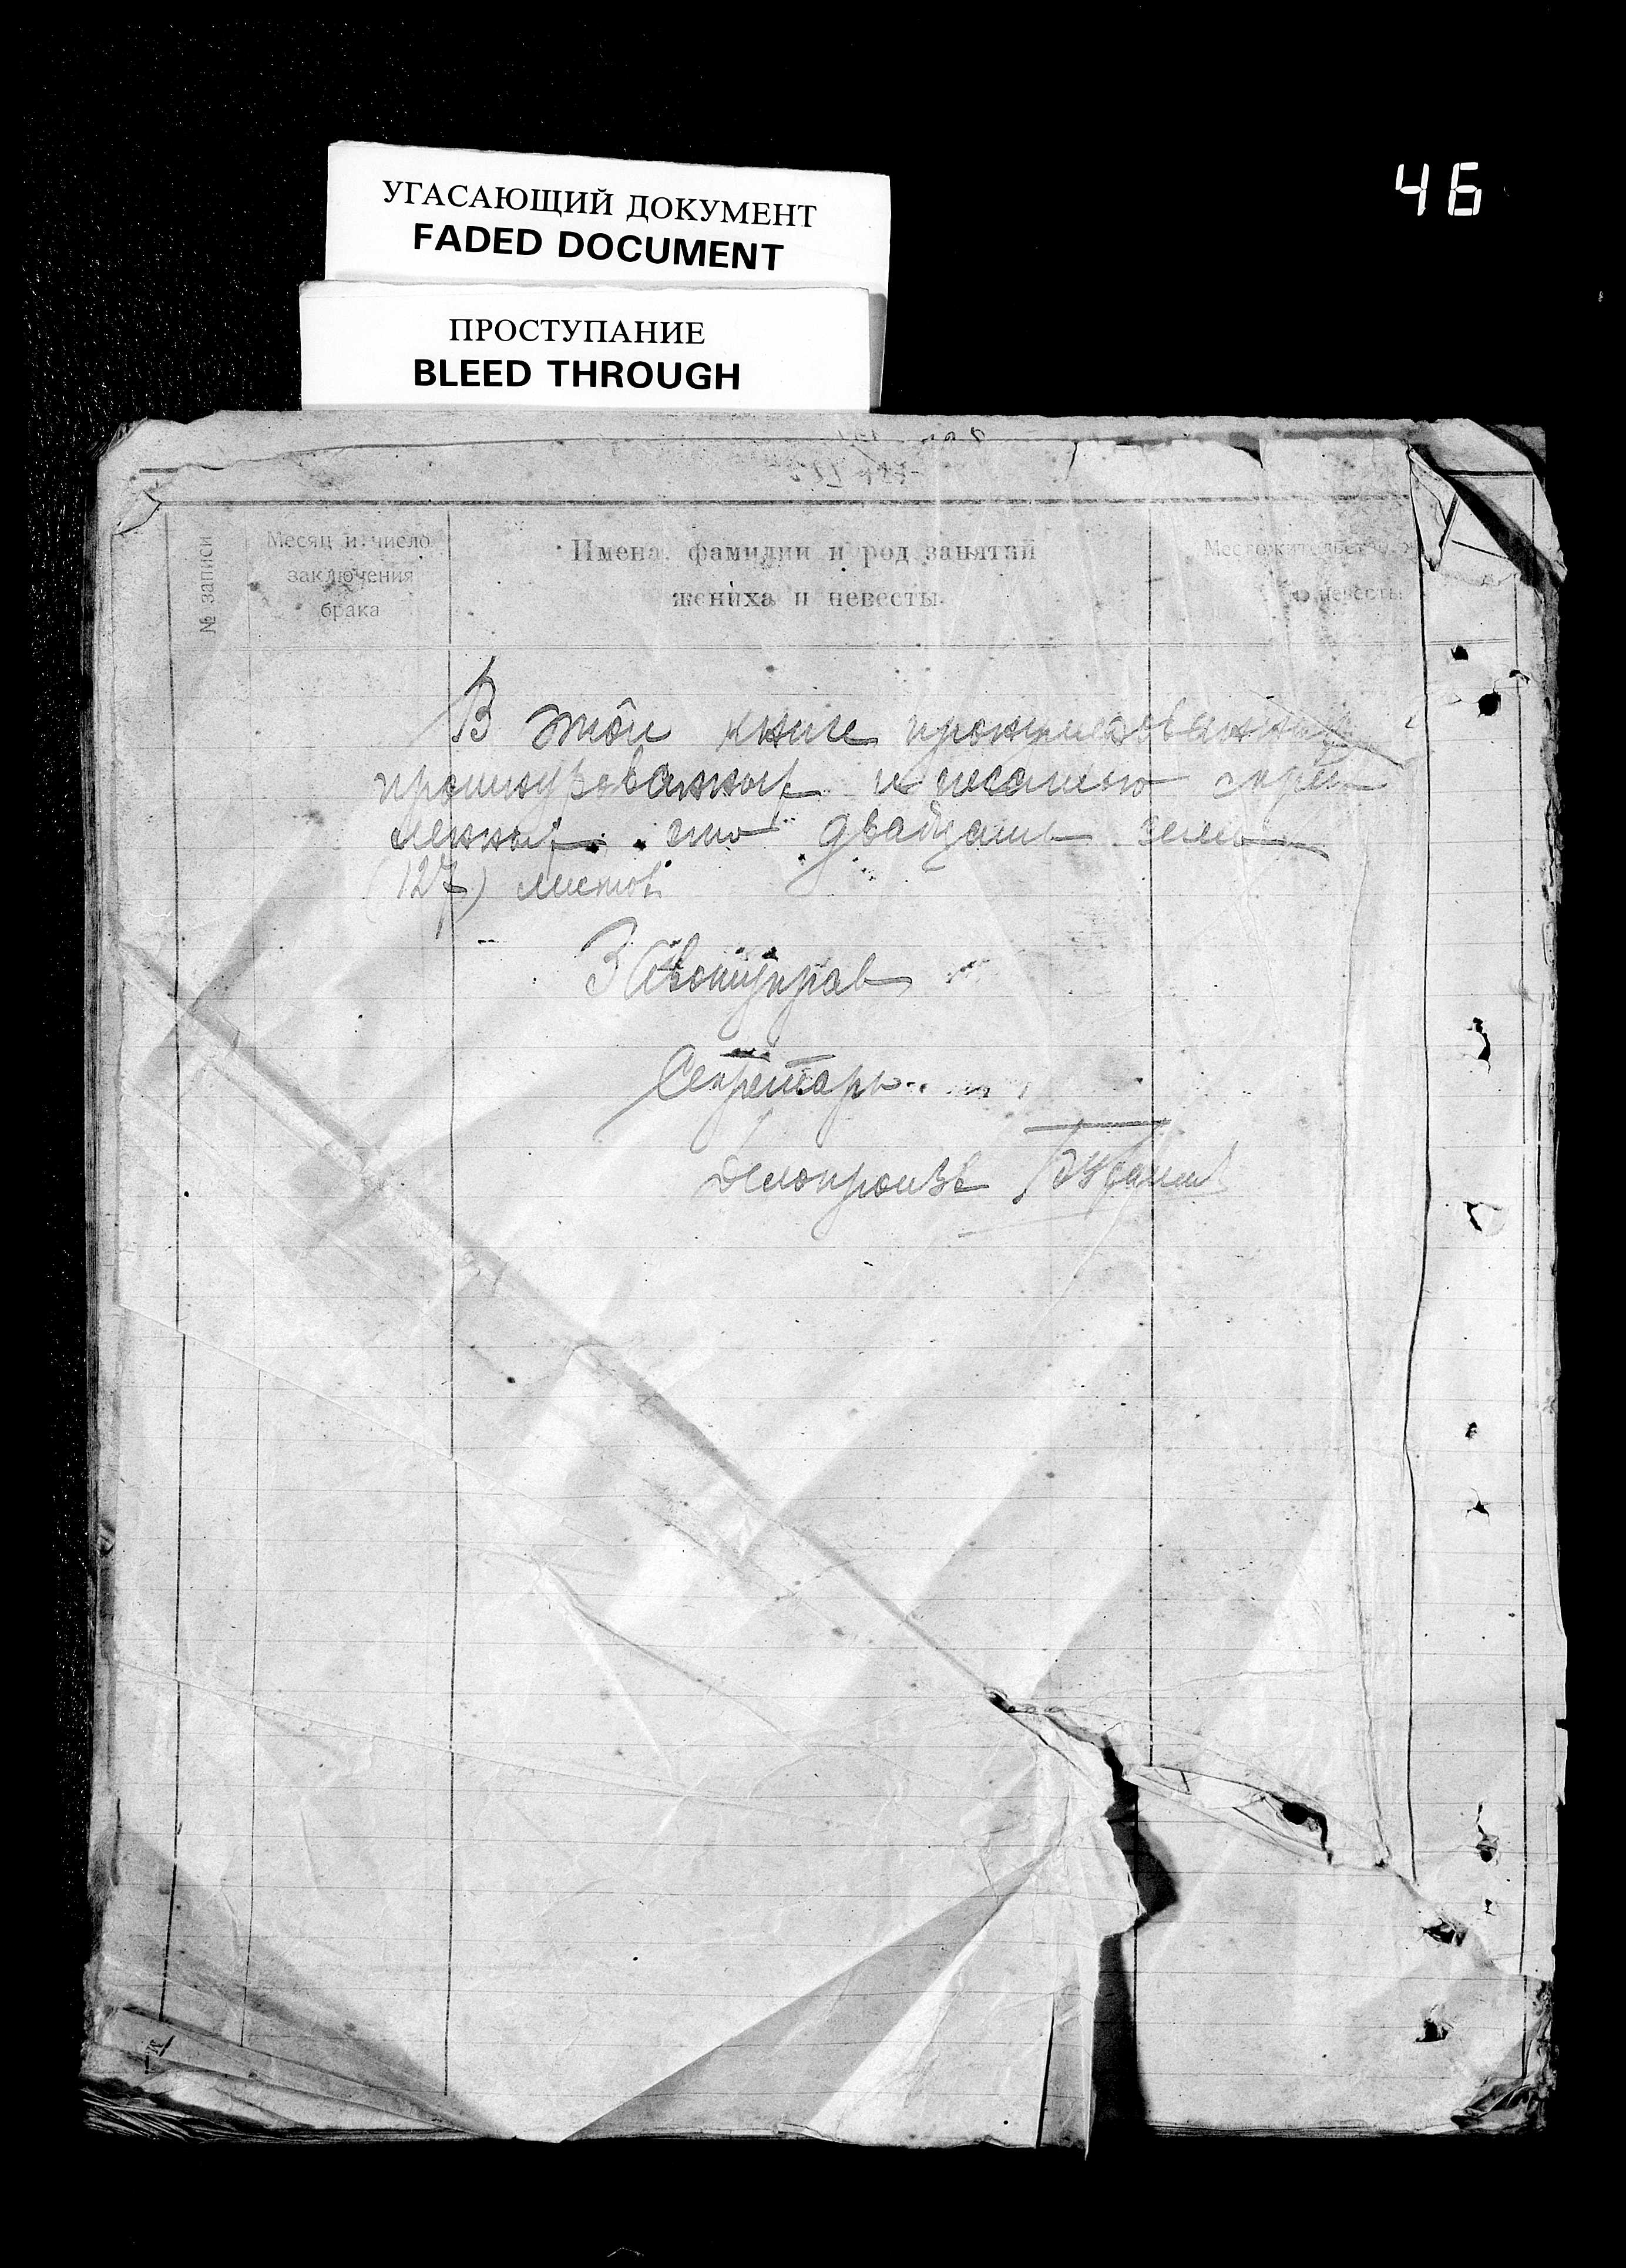 46
УГАСАЮЩИЙ ДОКУМЕНТ
FADED DOCUMENT
ПРОСТУПАНИЕ
BLEED THROUGH
№ записи
Месяц и число
заключения
брака
Имена, фамилии и род занятий
жениха и невесты.
Местожительство
и невесты
В этой книге пронумерованных
прошнурованных и печатью скреп
ленных сто двадцать семь
(127) листов
Секретарь
Делопроизв